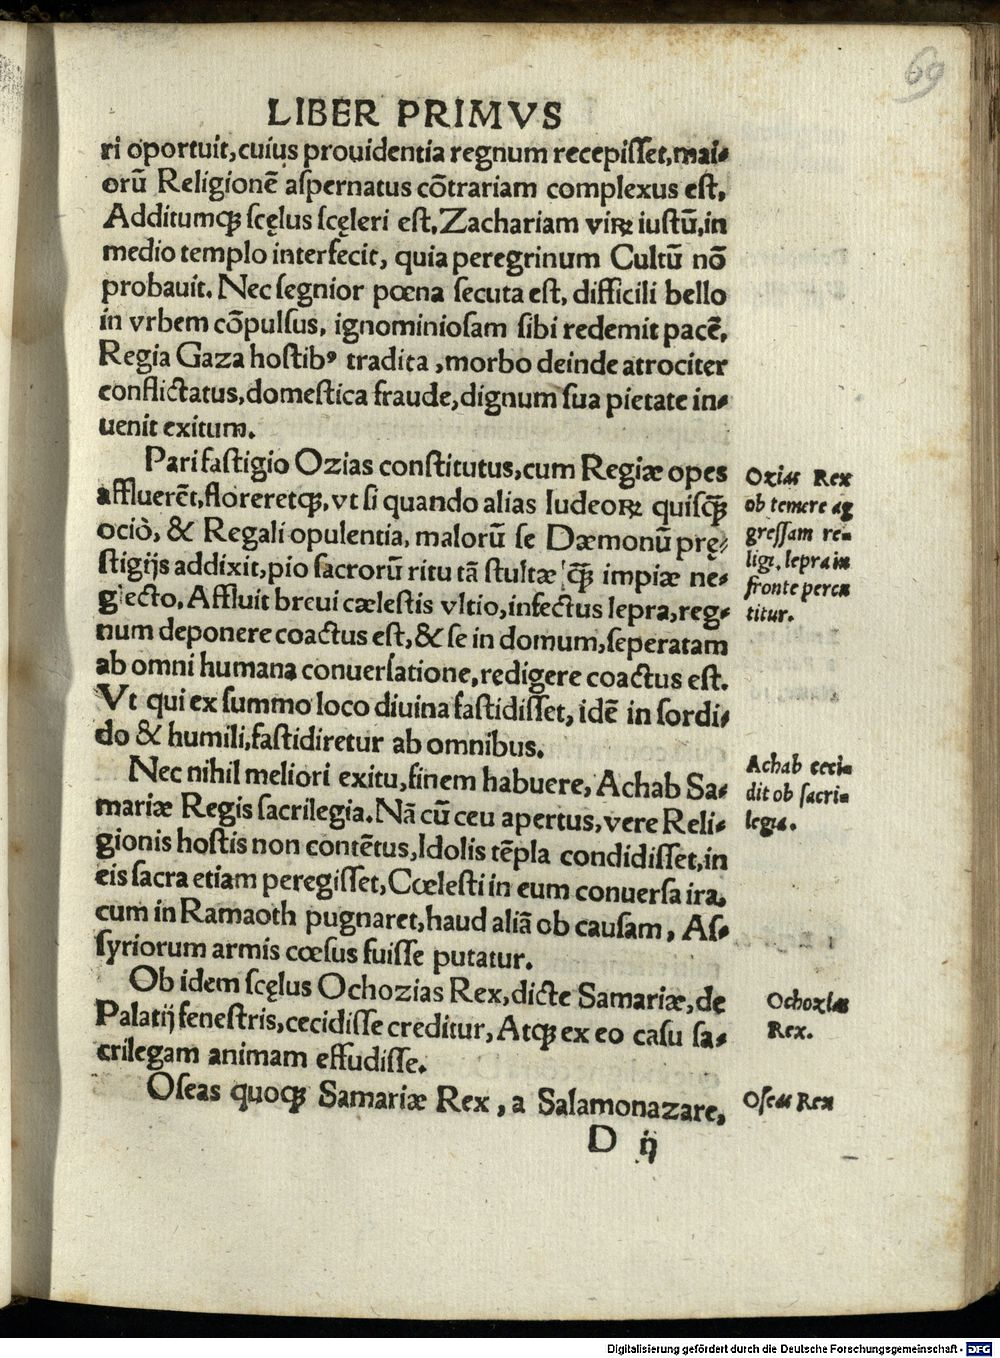 69
LIBER PRIMVS
ri oportuit,cuius prouidentia regnum recepiſſet,mai⸗
orū Religionē aſpernatus cōtrariam complexus eſt,
Additumꝗ ſcęlus ſcęleri eſt,Zachariam viꝝ iuſtū,in
medio templo interfecit, quia peregrinum Cultū nō
probauit. Nec ſegnior pœna ſecuta eſt, difficili bello
in vrbem cōpulſus, ignominioſam ſibi redemit pacē,
Regia Gaza hoſtibꝰ tradita ,morbo deinde atrociter
conflictatus,domeſtica fraude,dignum ſua pietate in⸗
uenit exitum.
Pari faſtigio Ozias conſtitutus,cum Regiæ opes
affluerēt,floreretꝗ,vt ſi quando alias Iudeoꝝ quiſꝗ̄
ociò, & Regali opulentia, malorū ſe Dæmonū prę⸗
ſtigijs addixit,pio ſacrorū ritu tā ſtultæ ꝗ̄ impiæ ne⸗
glecto. Affluit breui cæleſtis vltio,infectus lepra,reg⸗
num deponere coactus eſt,& ſe in domum,ſeperatam
ab omni humana conuerſatione,redigere coactus eſt.
Vt qui ex ſummo loco diuina faſtidiſſet, idē in ſordi⸗
do & humili,faſtidiretur ab omnibus.
Nec nihil meliori exitu,finem habuere, Achab Sa⸗
mariæ Regis ſacrilegia.Nā cū ceu apertus,vere Reli⸗
gionis hoſtis non contētus,Idolis tēpla condidiſſet,in
eis ſacra etiam peregiſſet,Cœleſti in eum conuerſa ira,
cum in Ramaoth pugnaret,haud aliā ob cauſam, Aſ⸗
ſyriorum armis cœſus fuiſſe putatur.
Ob idem ſcęlus Ochozias Rex,dicte Samariæ,de
Palatij feneſtris,cecidiſſe creditur,Atꝗ ex eo caſu ſa⸗
crilegam animam effudiſſe.
Oſeas quoꝗ Samariæ Rex, a Salamonazare,
D ij
Ozias Rex
ob temere ag
greſſam re⸗
ligi. lepra in
fronte percu
titur.
Achab ceci⸗
dit ob ſacri⸗
legia.
Ochozias
Rex.
Oſeas Rex
Digitalisierung gefördert durch die Deutsche Forschungsgemeinschaft - DFG